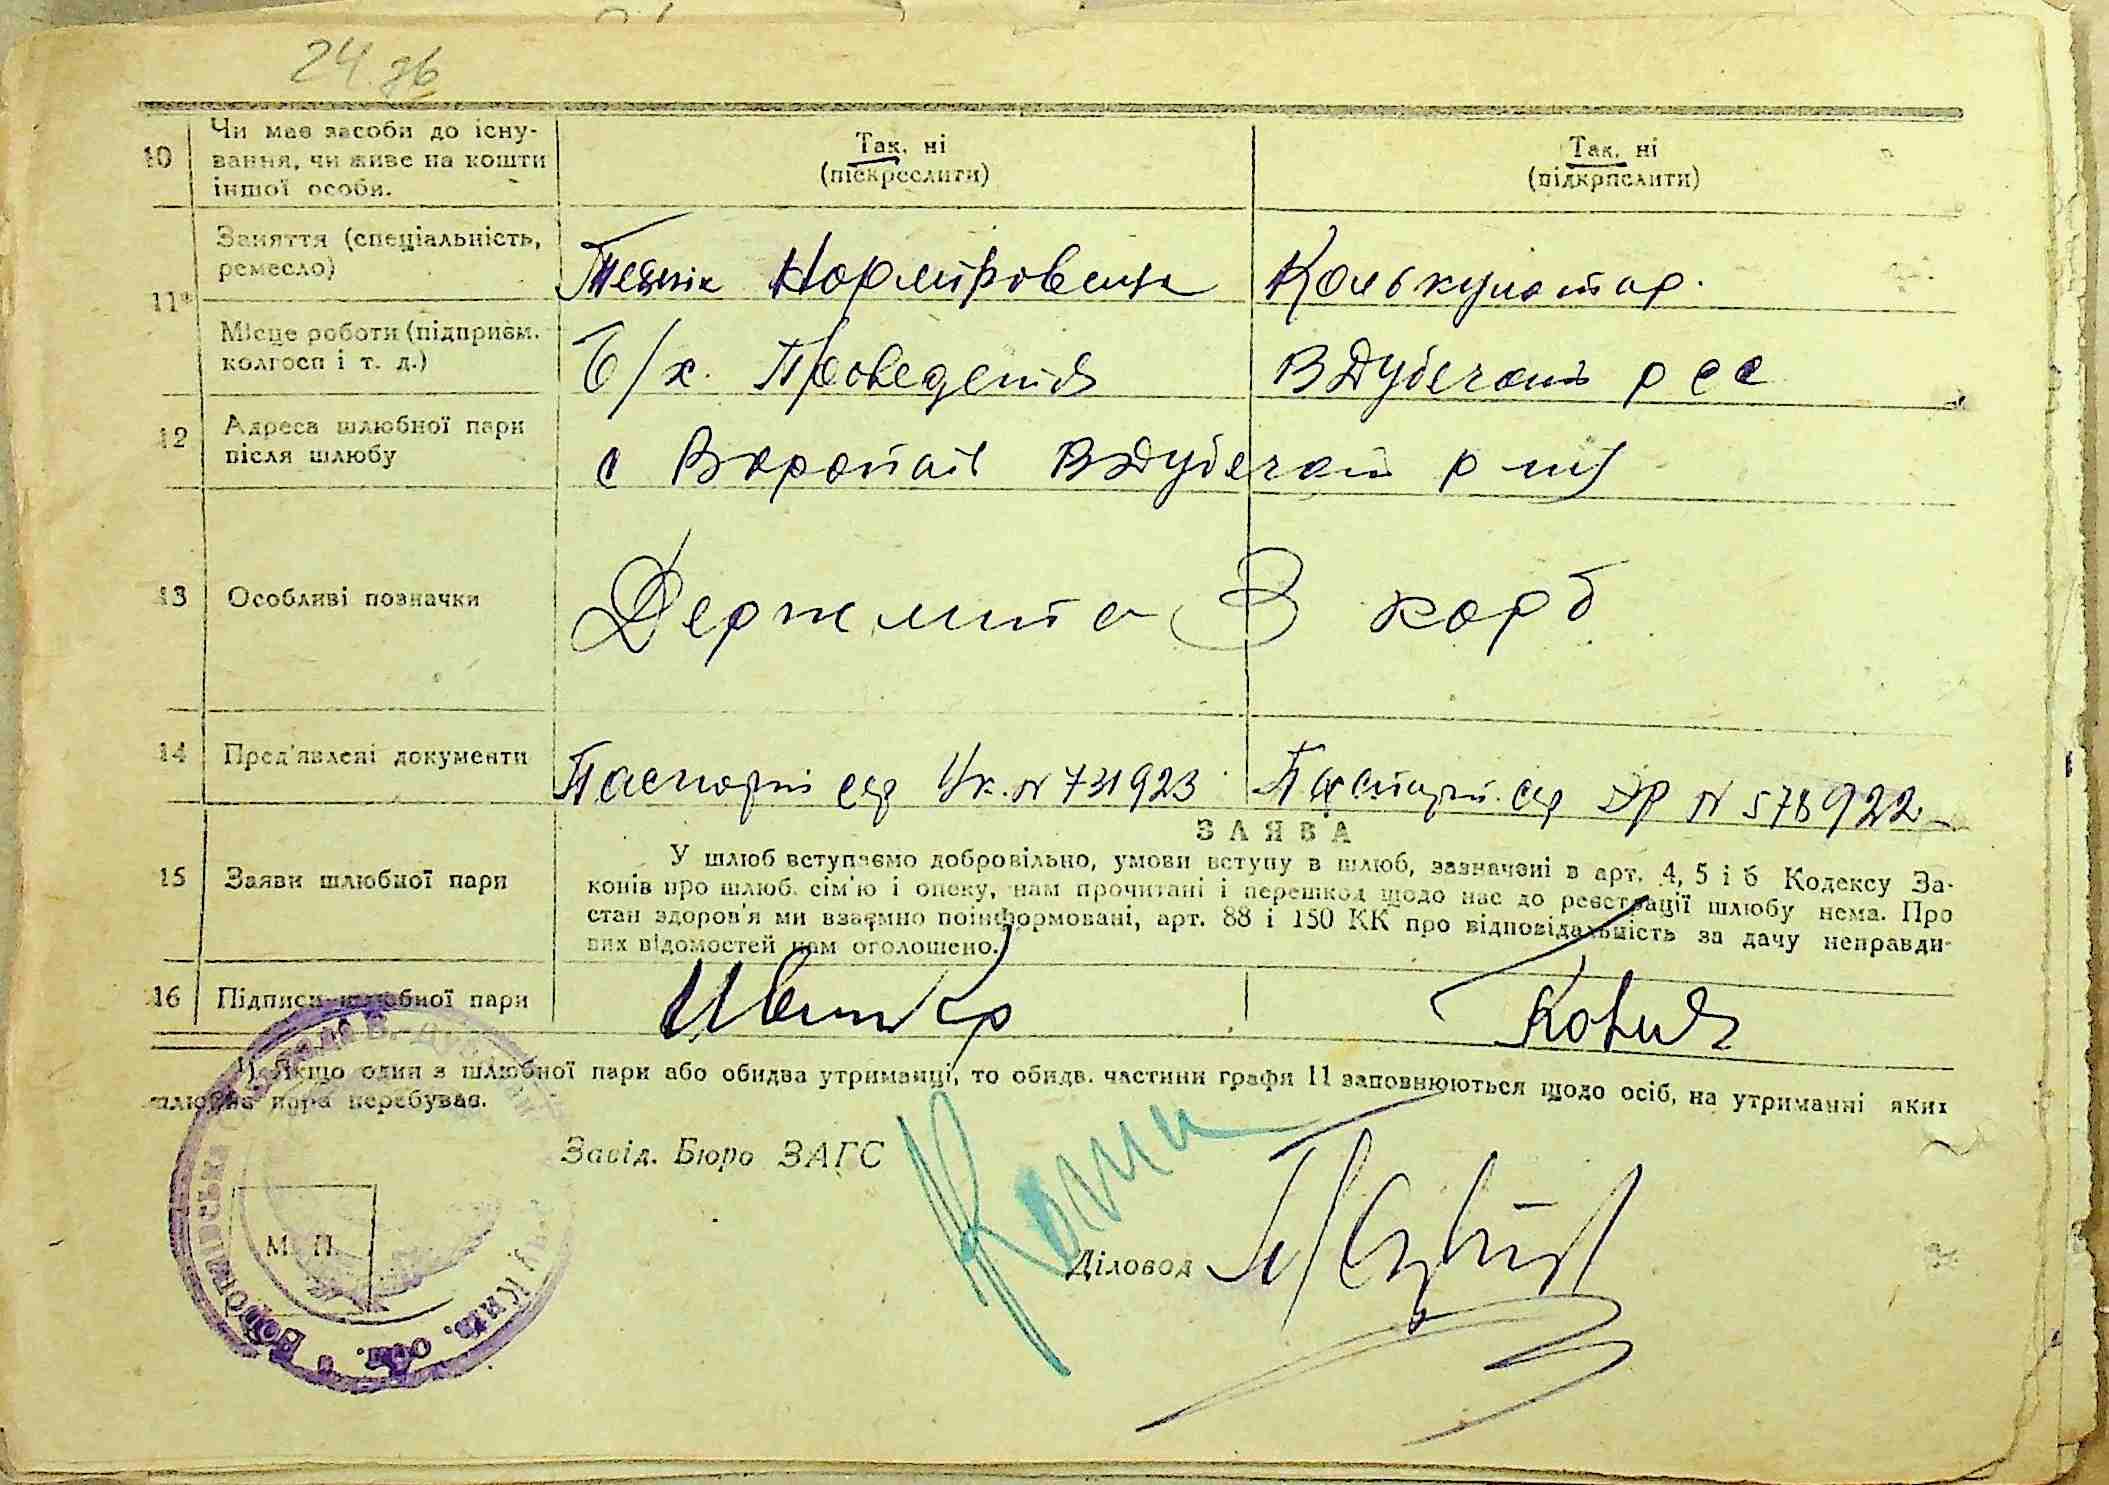 24 зв
10
Чи має засоби до існу-
вання, чи живе на кошти
іншої особи.
Так, ні
(піскреслити)
Так, ні
(підкрпслити)
11*
Заняття (спеціальність,
ремесло)
Технік Норміровещик
Калькулятор.
Місце роботи (підприєм.
колгосп і т. д.)
Б/х.
ВДубечан РСС
12
Адреса шлюбної пари
після шлюбу
с Воропаїв ВДубечан р ну
13
Особливі позначки
Держмито 3 карб
14
Пред'явлені документи
Паспорт сер Ук. N 731923
Паспорт. сер ДР N 578922
15
Заяви шлюбної пари
ЗАЯВА
У шлюб вступаємо добровільно, умови вступу в шлюб, зазначені в арт. 4, 5 і 6 Кодексу За-
конів про шлюб. сім'ю і опеку, нам прочитані і перешкод щодо нас до реєстрації шлюбу нема. Про
стан здоров'я ми взаємно поінформовані, арт. 88 і 150 КК про відповідальність за дачу неправди-
вих відомостей нам оголошено.
16
Підписи шлюбної пари
1) Якщо один з шлюбної пари або обидва утриманці, то обидв. частини графи 11 заповнюються щодо осіб, на утриманні яких
шлюбна пара перебуває.
Завід. Бюро ЗАГС
М. П.
Діловод